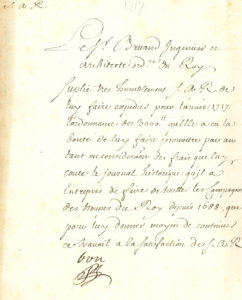 S. A. R.
1717
Le Sr. Bruand Ingenieur et
Architecte ordre. du Roy
Suplie tres humblement S. A. R. de
luy faire expedier pour lannée 1717.
lordonnance de 3000 quelle a eu la
bonté de luy faire promettre par an
tant en consideration des frais que luy
coute le journal historique quil a
entrepris de faire de toutte les Campagnes
des troupes du Roy depuis 1688. que
pour luy donner moyen de continuer
ce travail a la satisfaction de S. A. R.
bon